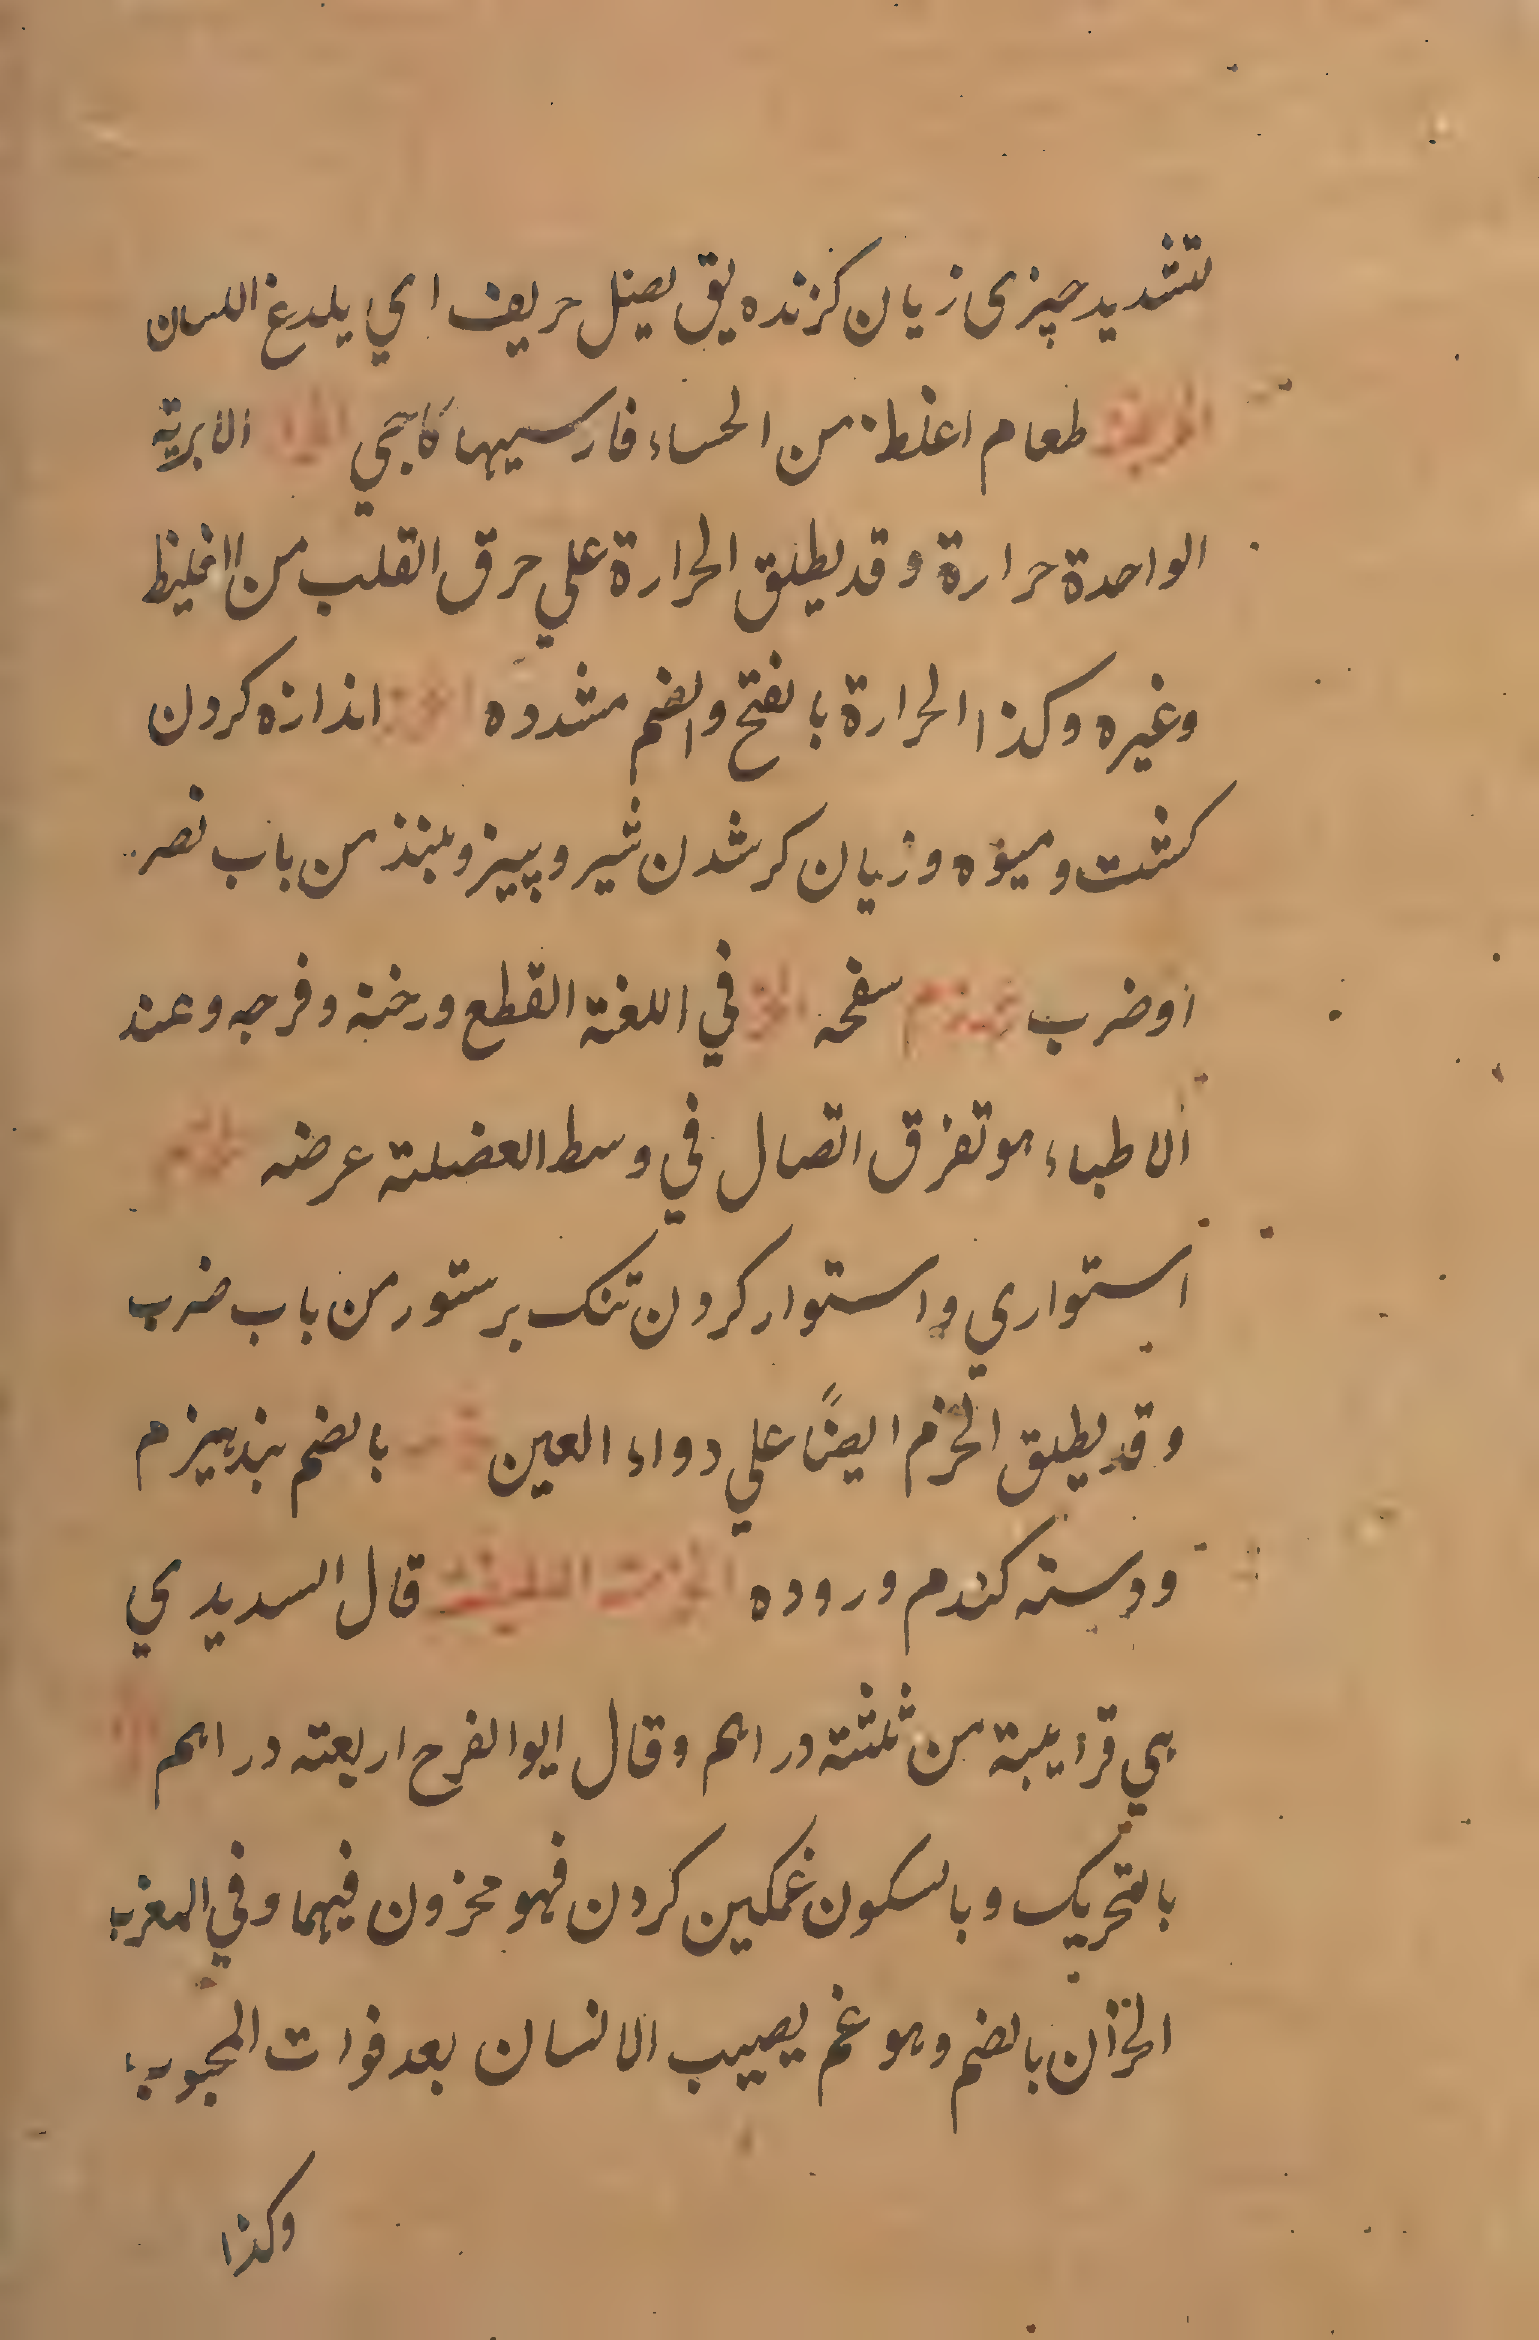 تشديد چيزى زيان كزنده يق بصل حريف اي يلدغ اللسان
طعام اغلظ من الحساء فارسيها كاچي الابرية
الواحدة حرارة وقد يطلق الحرارة علي حرق القلب من الغليظ
وغيره وكذا الحرارة بالفتح والضم مشدده اندازه كردن
كشت وميوه وزيان كر شدن شير وپيز ونبنذ من باب نصر
اوضرب سفحه في اللغة القطع ورخنه وفرجه وعند
الاطباء هو تفرق اتصال في وسط العضلة عرضه
استواري واستوار كردن تنك بر ستور من باب ضرب
وقد يطلق الحزم ايضًا علي دواء العين بالضم بند هيزم
ودسته كندم وروده قال السديدي
هي قرايبة من ثلثة دراهم وقال ابو الفرج اربعة دراهم
بالتحريك وبالسكون غمكين كردن فهو محزون فيهما وفي المغرب
الحزان بالضم وهو غم يصيب الانسان بعد فوات المحبوب
وكذا